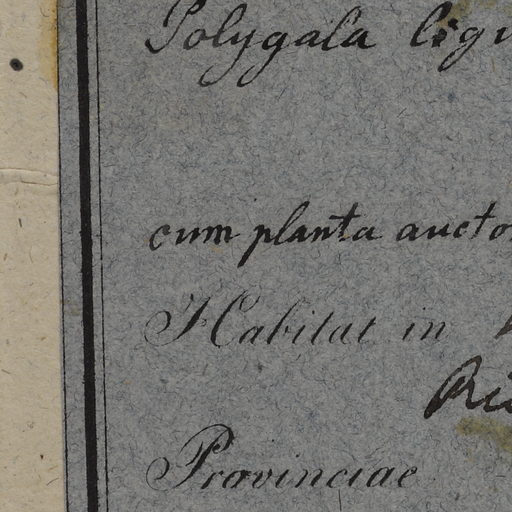 Polygala ligu
cum planta aucto
Habitat in
Provinciae